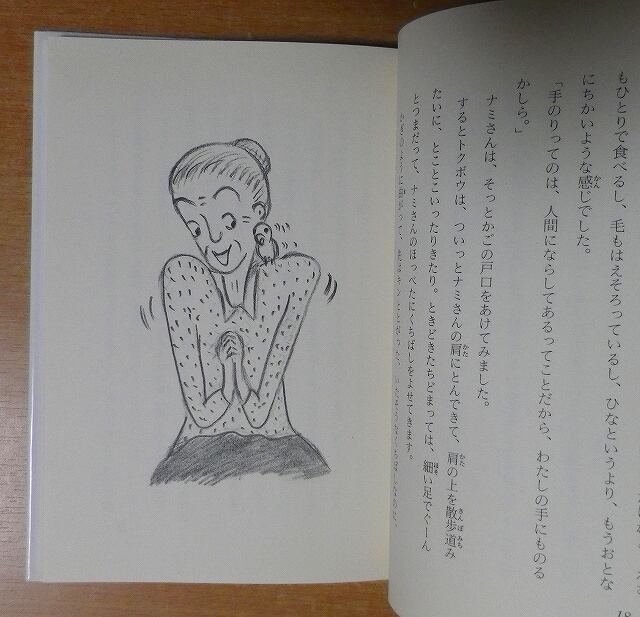 もひとりで食べるし、毛もはえそろっているし、ひなというより、もうおとな
にちかいような感じでした。
かん
「手のりってのは、人間にならしてあるってことだから、わたしの手にものる
かしら。」
ナミさんは、そっとかごの戸口をあけてみました。
するとトクボウは、ついっとナミさんの肩にとんできて、肩の上を散歩道み
かた
かた
さんぽみち
たいに、とことこいったりきたり。ときどきたちどまっては、細い足でぐーん
ほそ
とつまだって、ナミさんのほっぺたにくちばしをよせてきます。
18